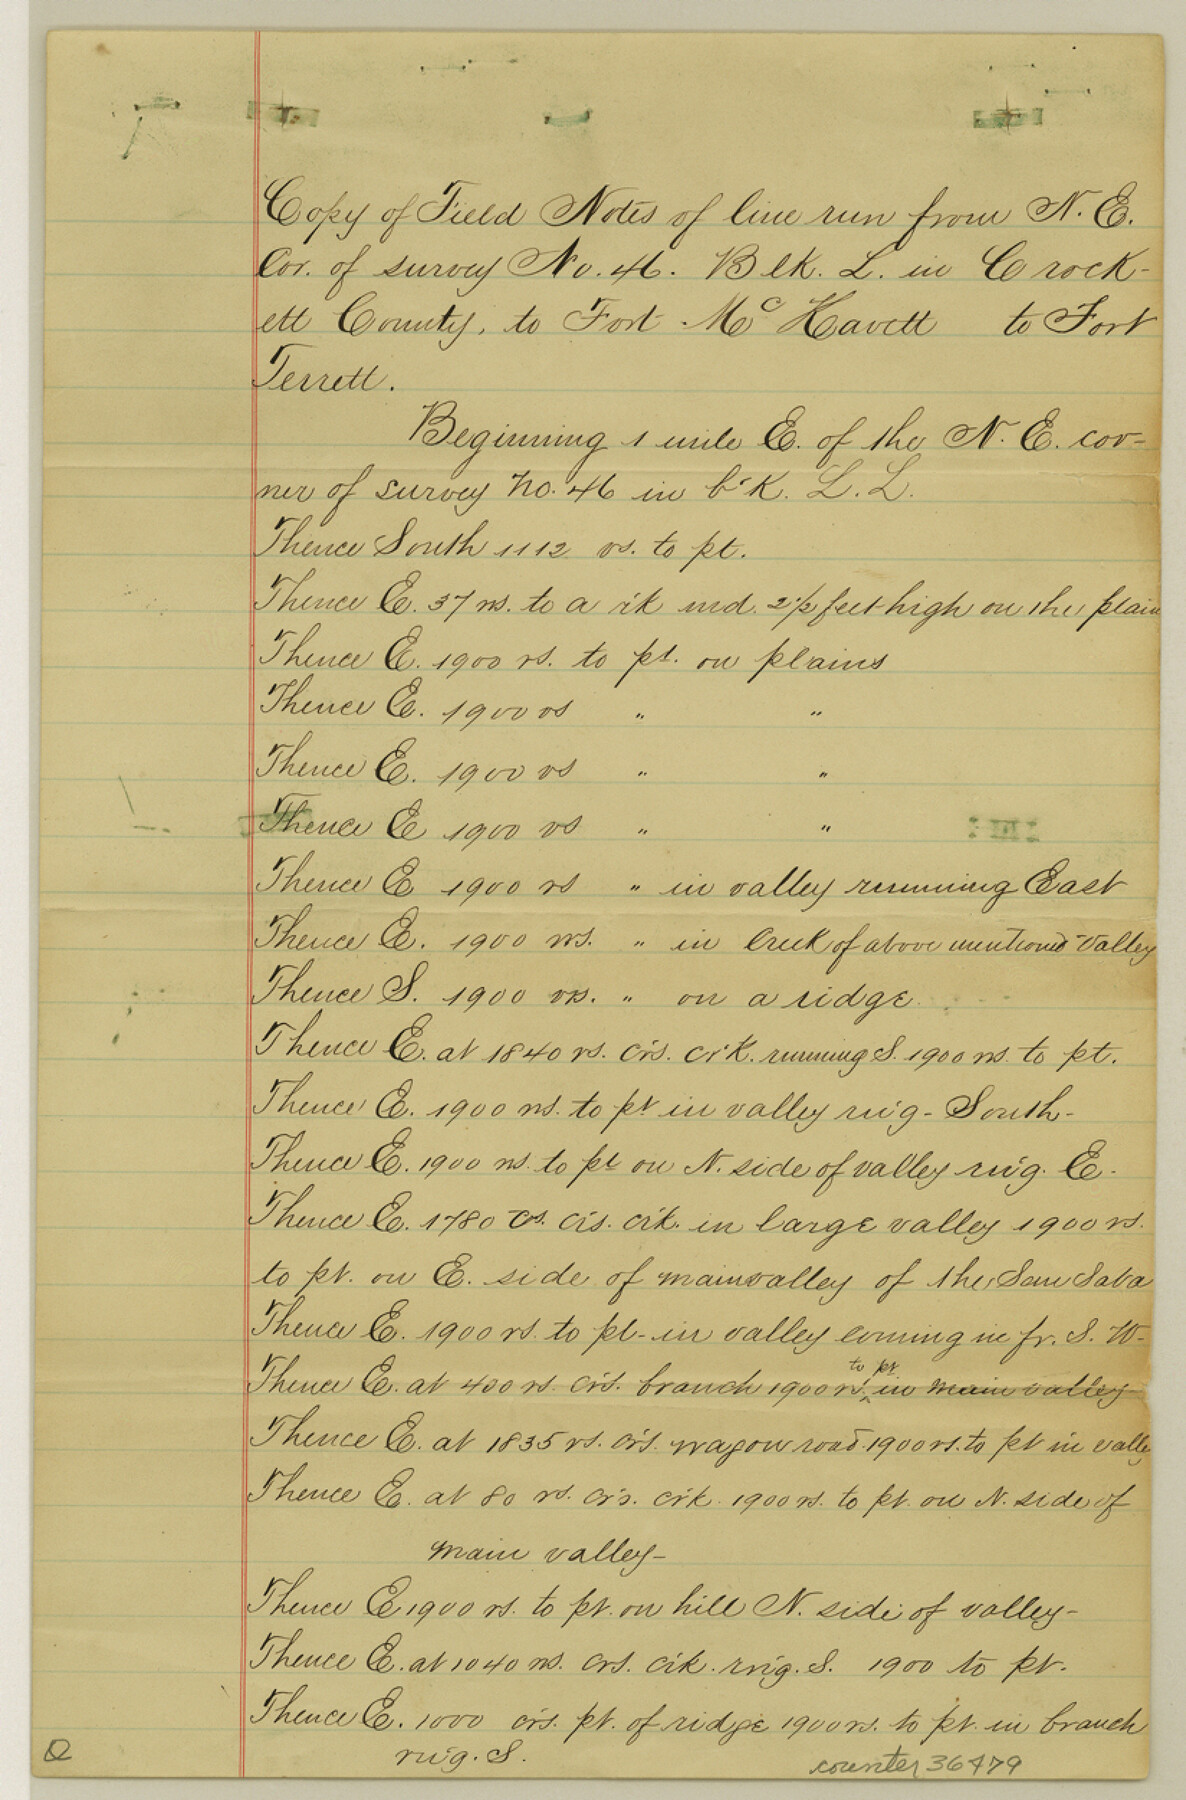 1
Copy of Field Notes of line run from N. E.
Cor. of survey No. 46. Blk. L. in Crock-
ett County, to Fort McKavett to Fort
Terrett.
Beginning 1 mile E. of the N. E. cor-
ner of survey No. 46 in b'k. L. L.
Thence South 1112 vs. to pt.
Thence E. 37 vs. to a r'k md. 2 1/2 feet high on the plain
Thence E. 1900 vs. to pt. on plains
Thence E. 1900 vs " "
Thence E. 1900 vs " "
Thence E 1900 vs " "
Thence E 1900 vs " in valley running East
Thence E. 1900 vrs. " in Creek of above mentioned Valley
Thence S. 1900 vrs. " on a ridge
Thence E. at 1840 vs. crs. cr'k. running S. 1900 vs. to pt.
Thence E. 1900 vs. to pt in valley rn'g - South -
Thence E. 1900 vs. to pt on N. side of valley rn'g. E.
Thence E. 1780 vs. crs. crk. in large valley 1900 vs.
to pt. on E. side of main valley of the San Saba
Thence E. 1900 vs. to pt - in valley coming in fr. S. W-
Thence E. at 400 vs. crs. branch 1900 vs. to pt in main valley
Thence E. at 1835 vs. crs. wagon road 1900 vs. to pt in valley
Thence E. at 80 vs. crs. crk. 1900 vs. to pt. on N. side of
main valley -
Thence E 1900 vs. to pt. on hill N. side of valley -
Thence E. at 1040 vs. crs. crk. rn'g. S. 1900 to pt.
Thence E. 1000 crs. pt. of ridge 1900 vs. to pt. in branch
rn'g. S.
counter 36479